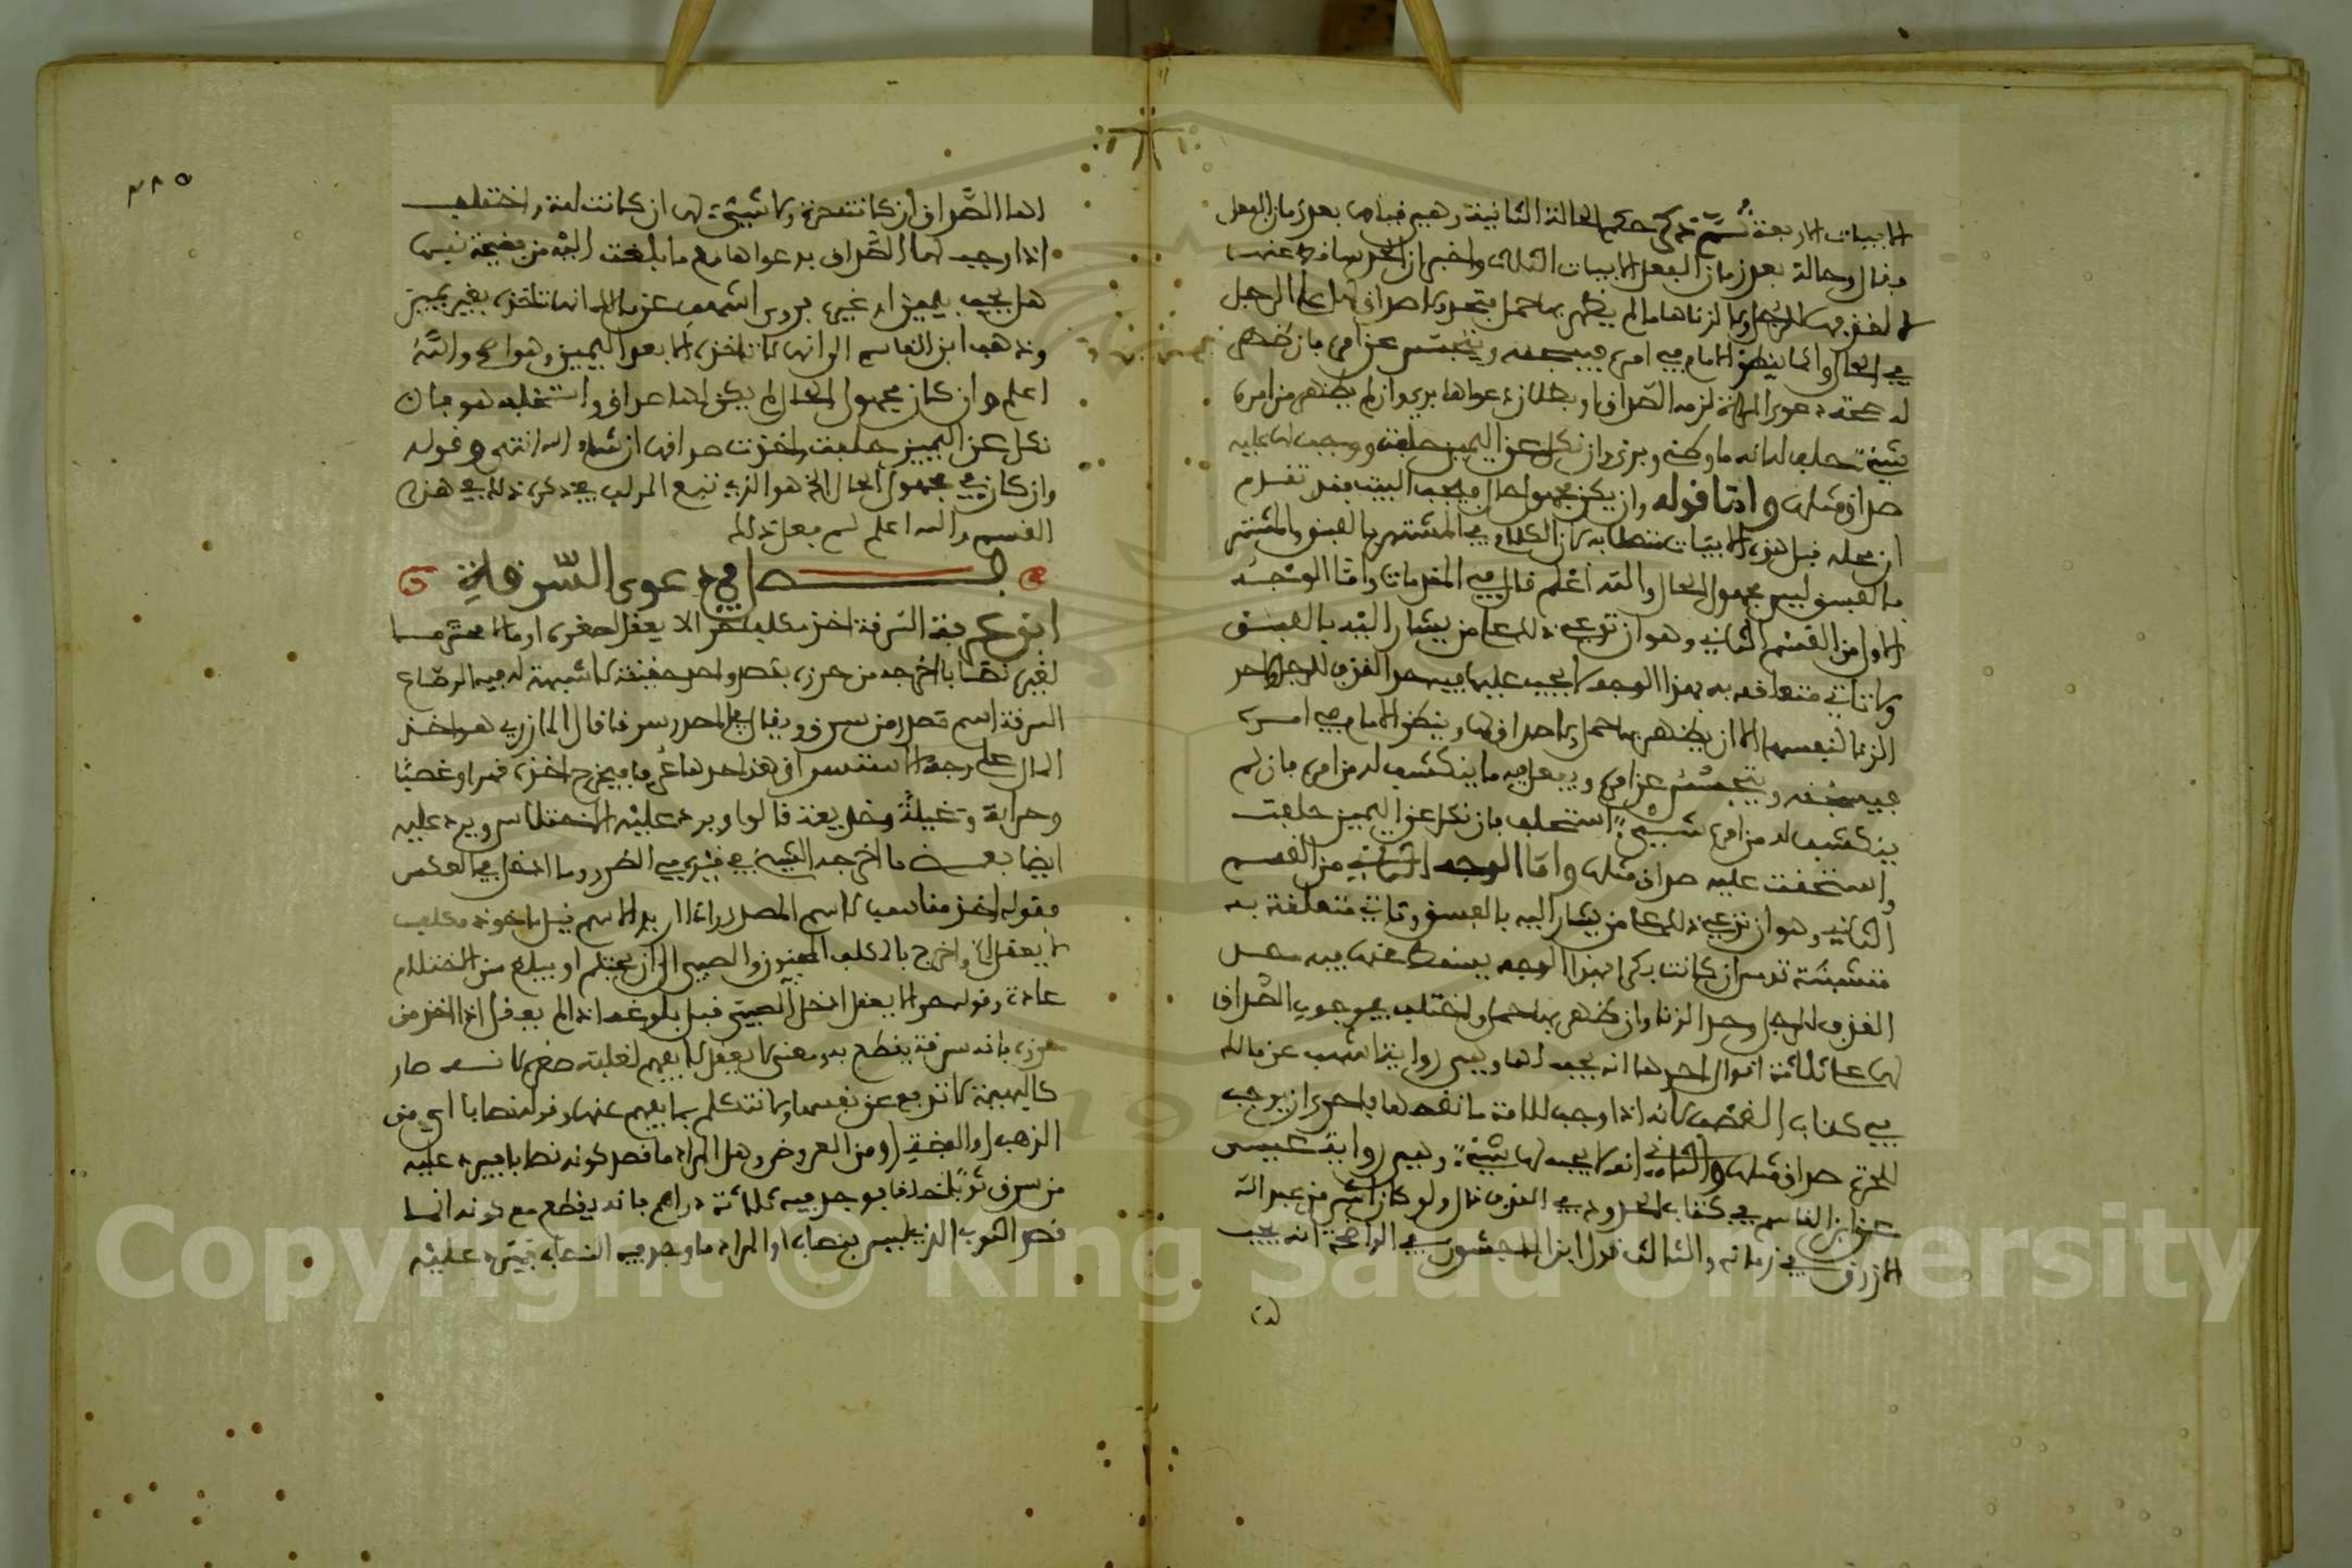 الابيات الاربعة ثم ذكر حكم الحالة الثانية وهي قيامها بعد زمان الفعل
فقال وحالة بعد زمان الفعل الابيات الثلاث واخبر ان الحد ساقط عنها
لا لقذفها للرجل ولا لزناها ما لم يظهر بها حمل فتحد ولا صداق لها على الرجل
في الحال وانما ينظر الامام في امره فيسجنه ويتجسس عن امره فان ظهر
له صحة دعوى المراة لزمه الصداق او بطلان دعواها بري وان لم يظهر من امره
شيء حلف انه ما وطئ وبرئ وان نكل عن اليمين حلفت ووجب لها عليه
صداق مثلها واما قوله وان يكن مجهول حال البيت فقد تقدم
ان محله قبل هذه الابيات لان الكلام في المشتهر بالفسق والمشتهر
بالفسق ليس مجهول الحال والله اعلم قال في المقدمات واما الوجه
الاول من القسم الثاني وهو ان تدعي ذلك على من يشار اليه بالفسق
ولا تاتي متعلقة به بهذا الوجه لا يجب عليها فيه حد القذف للرجل ولا حد
الزنا لنفسها الا ان يظهر بها حمل ولا صداق لها وينظر الامام في امره
فيسجنه ويتجسس عن امره ويفعل فيه ما ينكشف له من امره فان لم
ينكشف له من امره شيء استحلف فان نكل عن اليمين حلفت
واستحقت عليه صداق مثلها واما الوجه الثاني من القسم
الثاني وهو ان تدعي ذلك على من يشار اليه بالفسق وتاتي متعلقة به
متشبثة تدمى ان كانت بكرا فهذا الوجه يسقط عنها فيه حد
القذف للرجل وحد الزنا وان ظهر بها حمل واختلف في وجوب الصداق
لها على ثلاثة اقوال احدها انه يجب لها وهي رواية اشهب عن مالك
في كتاب الغصب لانه اذا وجب للامة ما نقصها فاحرى ان يوجب
للحرة صداق مثلها والثاني انه لا يجب لها شيء وهي رواية عيسى
عن ابن القاسم في كتاب الحدود في القذف قال ولو كان اشر من عبد الله
الازرق في زمانه والثالث قول ابن الماجشون في الواضحة انه يجب
لها
٢٨٥
لها الصداق ان كانت حرة ولا شيء لها ان كانت امة واختلف
اذا وجب لها الصداق بدعواها مع ما بلغت اليه من فضيحة نفسها
هل يجب بيمين او غيره فروى اشهب عن مالك انها تاخذه بغير يمين
وذهب ابن القاسم الى انها لا تاخذه الا بعد اليمين وهو اصح والله
اعلم وان كان مجهول الحال لم يكن لها صداق واستحلف هو فان
نكل عن اليمين حلفت واخذت صداقها ان شاء الله انتهى وقوله
وان كان مجهول الحال الخ هو الذي تبع المولف في ذكره ذلك في هذا
القسم والله اعلم لمن فعل ذلك
فصل في دعوى السرقة
ابن عرفة السرقة اخذ مكلف حرا لا يعقل لصغره او مالا محترما
لغيره نصابا اخرجه من حرزه بقصد واحد خفية لا شبهة له فيه الرصاع
السرقة اسم مصدر من سرق ويقال في المصدر سرقا قال المازري هو اخذ
المال على وجه الاستسرار فيخرج اخذه قهرا او غصبا
وحرابة وغيلة وخديعة قالوا ويرد عليه الاختلاس ويرد عليه
ايضا بعض ما اخرجه الشيخ في قيوده في الطرد وما ادخل في العكس
فقوله اخذ مناسب لاسم المصدر واذا اريد الاسم قيل ماخوذ مكلف
لا يعقل الخ واخرج بالمكلف المجنون والصبي الى ان يحتلم او يبلغ سن الاحتلام
عادة وقوله حرا لا يعقل ادخل الصبي قبل بلوغه اذا لم يعقل اذا اخذ من
حرزه فانه سرقة يقطع به ومعنى لا يعقل لا يفهم لغلبة صغره لانه صار
كالبهيمة لا تدفع عن نفسها ولا تتكلم بما يفهم عنها وقوله نصابا اي من
الذهب او الفضة او من العروض وهل المراد ما قصد كونه نصابا فيرد عليه
من سرق ثوبا خلقا فوجد فيه ثلاثة دراهم فانه يقطع مع كونه انما
قصد الثوب الذي ليس بنصاب او المراد ما وجد فيه النصاب فيرد عليه